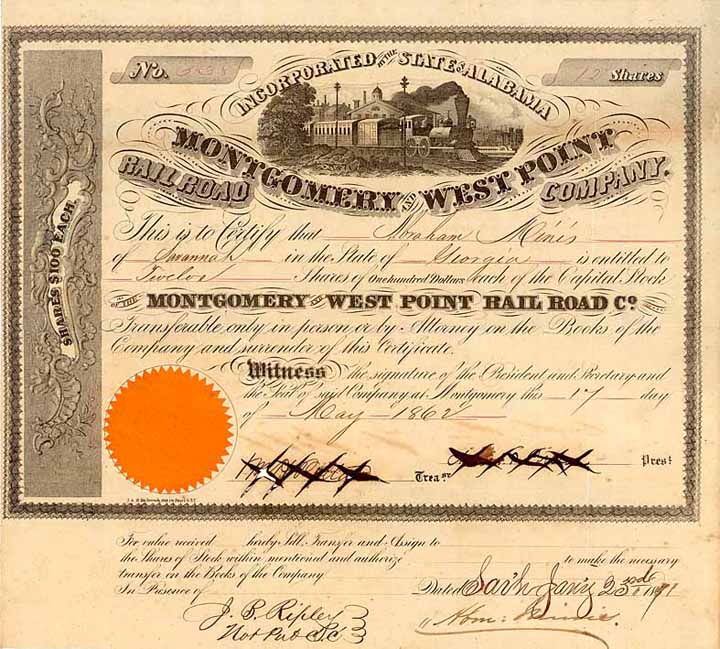 No.
12 Shares
INCORPORATED BY THE STATE OF ALABAMA
MONTGOMERY AND WEST POINT
RAIL ROAD COMPANY.
SHARES $100 EACH.
This is to Certify that Abraham Minis
of Savannah in the State of Georgia is entitled to
Twelve Shares of One hundred Dollars each of the Capital Stock
OF THE MONTGOMERY AND WEST POINT RAIL ROAD Co.
Transferable only in person or by Attorney on the Books of the
Company and surrender of this Certificate.
Witness the signature of the President and Secretary and
the Seal of said Company at Montgomery this 17 day
of May 1862
Treasr. Prest.
For value received hereby Sell, Tranzfer and Assign to
the Shares of Stock within mentioned and authorize to make the necessary
transfer on the Books of the Company
In Presence of Dated Sav'h Jan'y 23rd
J. B. Ripley
Not Pub C.C.
Abm. Minis